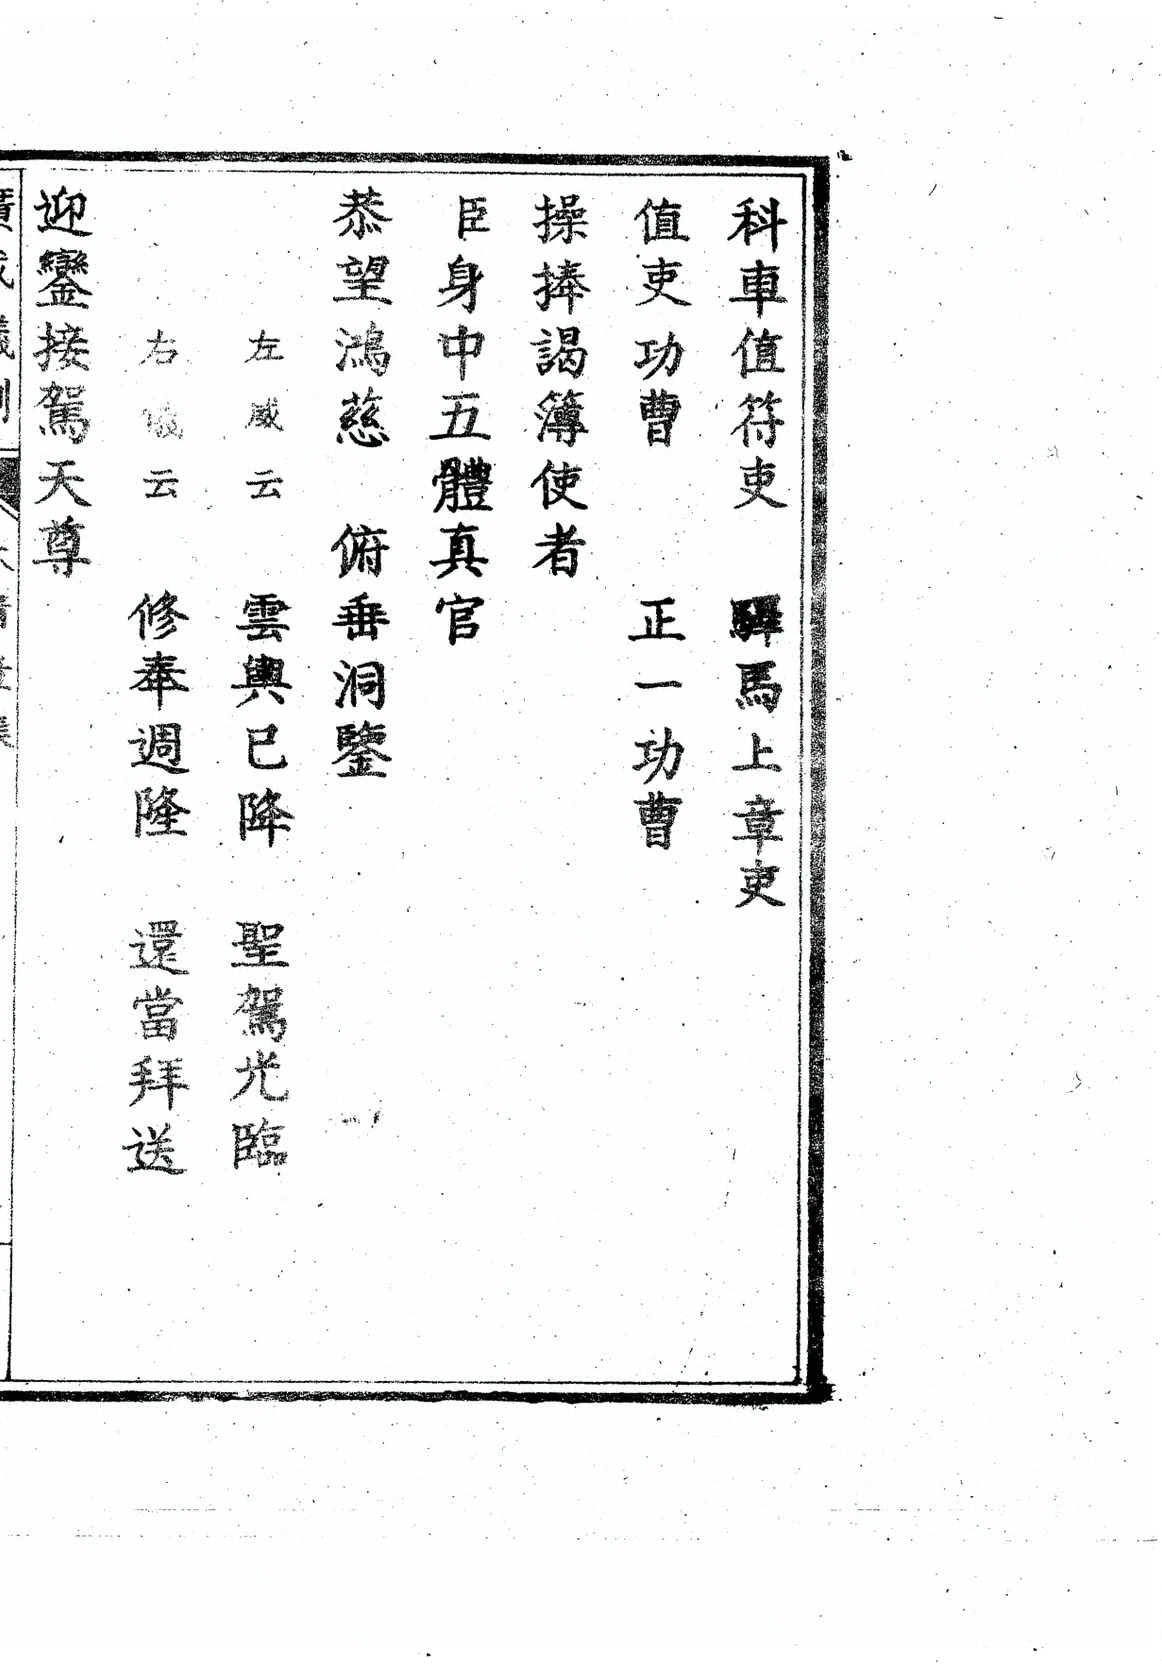 科車值符吏　驛馬上章吏
值吏功曹　正一功曹
操捧謁簿使者
臣身中五體真官
恭望鴻慈　俯垂洞鑒
左威云　雲輿已降　聖駕光臨
右儀云　修奉週隆　還當拜送
迎鑾接駕天尊
廣成儀制